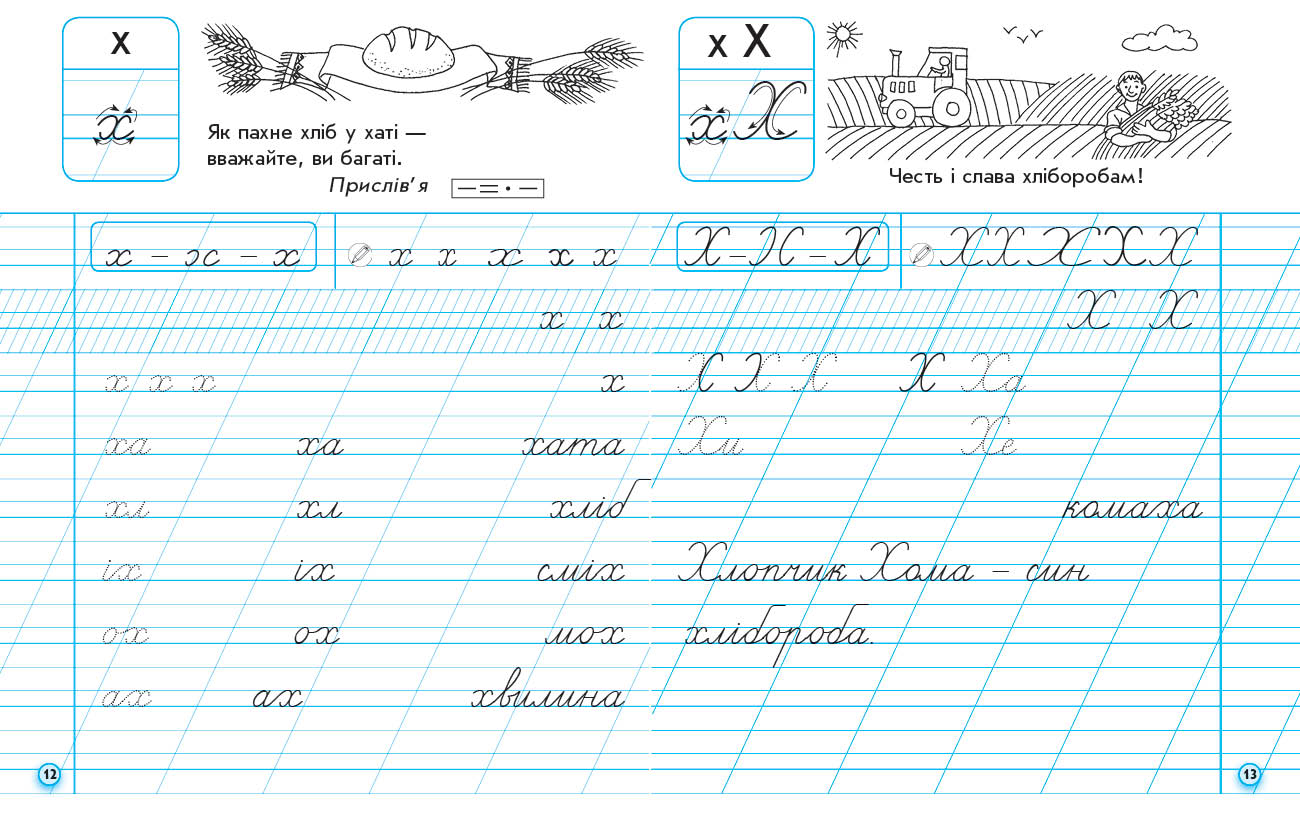 х
х
Як пахне хліб у хаті —
вважайте, ви багаті.
Прислів'я
х – х – х
х х х х х
х х
х х х х
ха ха хата
хл хл хліб
іх іх сміх
ох ох мох
ах ах хвилина
12
х Х
х Х
Честь і слава хліборобам!
Х – Х – Х
Х Х Х Х Х
Х Х
Х Х Х Х Ха
Хи Хе
комаха
Хлопчик Хома – син
хлібороба.
13